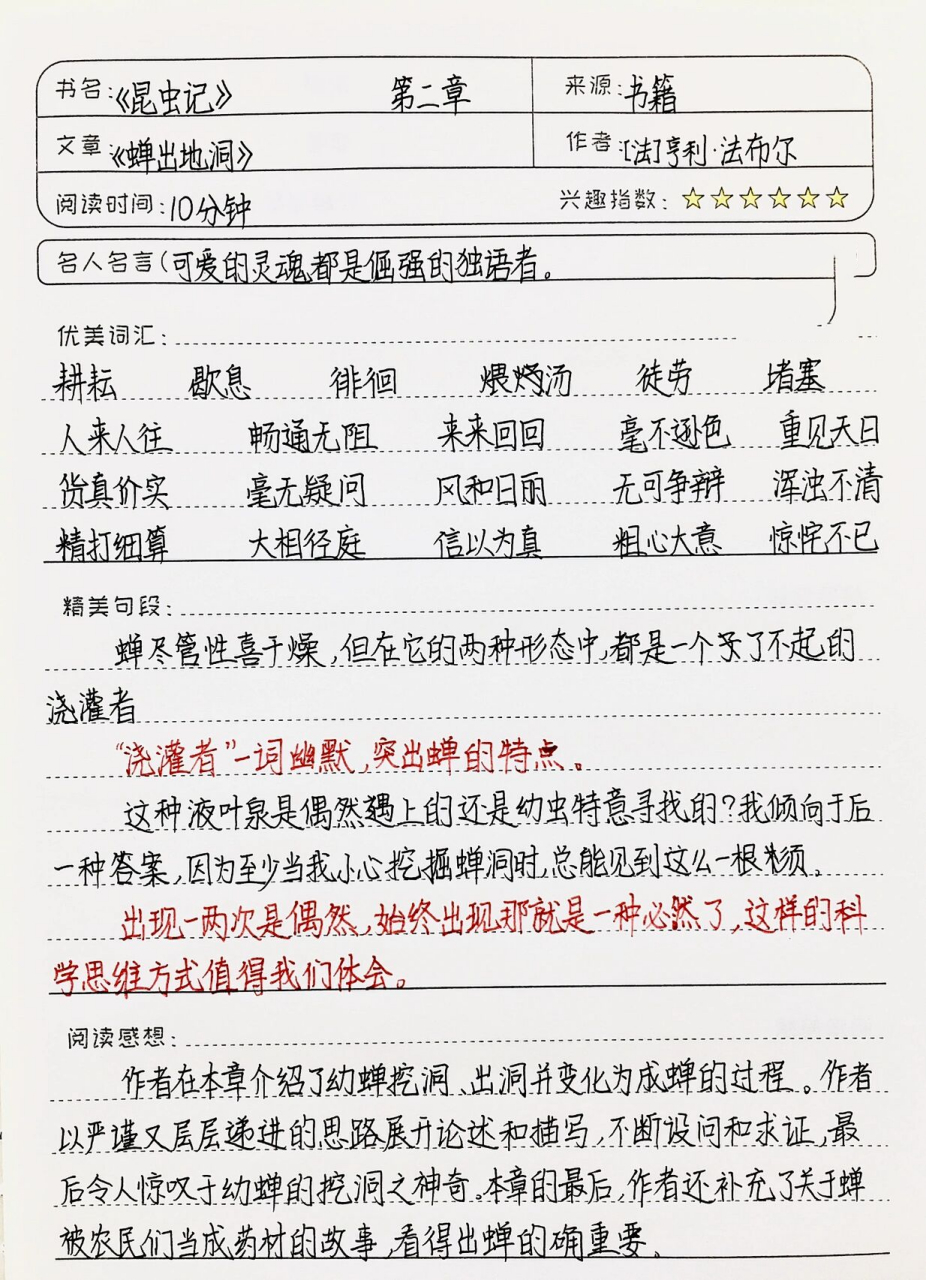 书名:《昆虫记》 第二章 来源:书籍
文章:《蝉出地洞》 作者:[法]亨利·法布尔
阅读时间:10分钟 兴趣指数:☆☆☆☆☆☆
名人名言(可爱的灵魂都是倔强的独语者。
优美词汇:
耕耘 歇息 徘徊 煨 汤 徒劳 堵塞
人来人往 畅通无阻 来来回回 毫不逊色 重见天日
货真价实 毫无疑问 风和日丽 无可争辩 浑浊不清
精打细算 大相径庭 信以为真 粗心大意 惊诧不已
精美句段:
蝉尽管性喜干燥,但在它的两种形态中,都是一个了不起的
浇灌者
“浇灌者”一词幽默,突出蝉的特点。
这种液叶泉是偶然遇上的还是幼虫特意寻找的?我倾向于后
一种答案,因为至少当我小心挖掘蝉洞时,总能见到这么一根须。
出现一两次是偶然,始终出现那就是一种必然了,这样的科
学思维方式值得我们体会。
阅读感想:
作者在本章介绍了幼蝉挖洞、出洞并变化为成蝉的过程。作者
以严谨又层层递进的思路展开论述和描写,不断设问和求证,最
后令人惊叹于幼蝉的挖洞之神奇。本章的最后,作者还补充了关于蝉
被农民们当成药材的故事,看得出蝉的确重要。